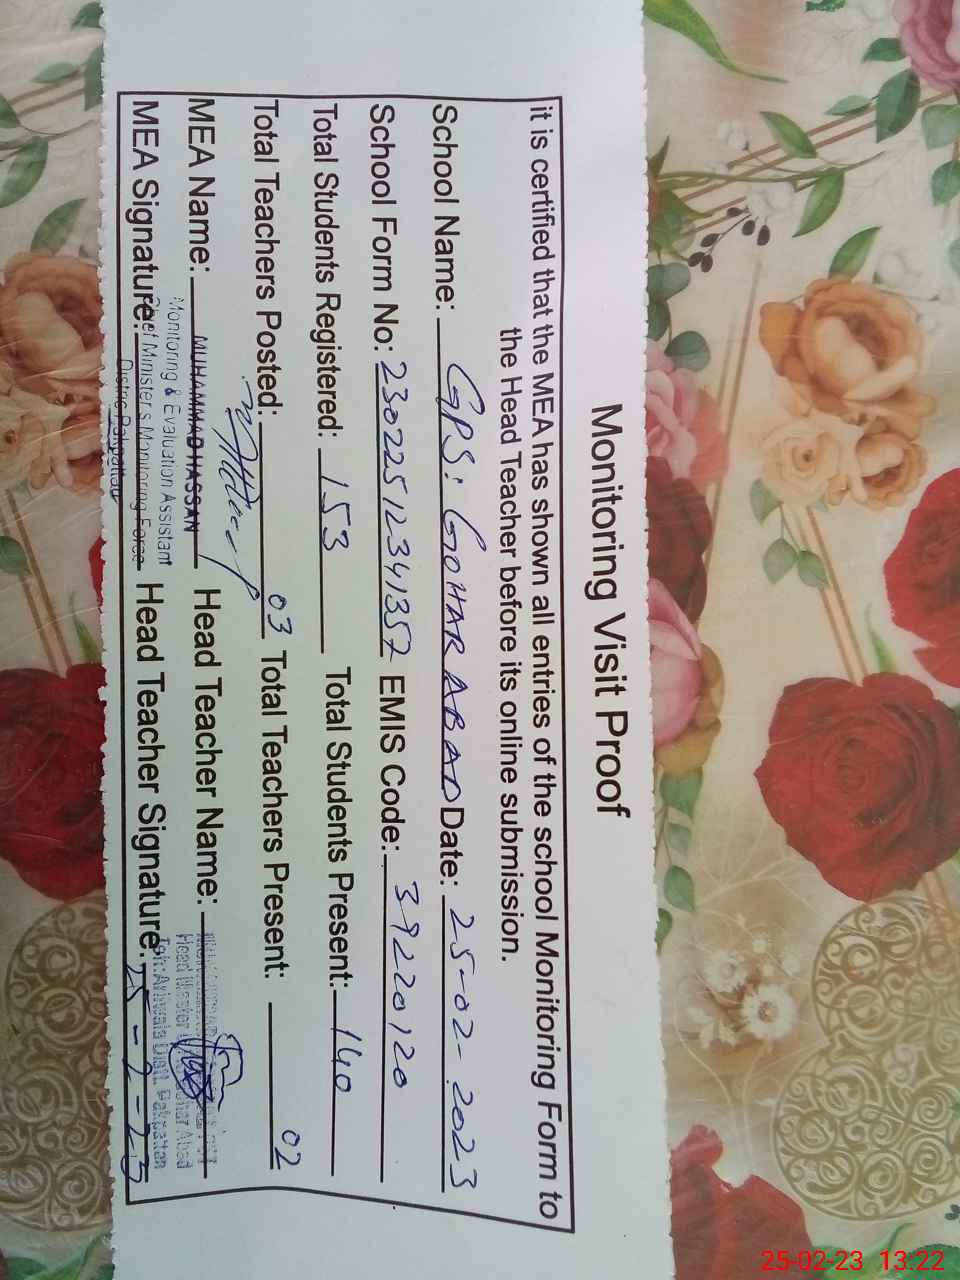 Monitoring Visit Proof
it is certified that the MEA has shown all entries of the school Monitoring Form to
the Head Teacher before its online submission.
School Name: GPS: GOHAR ABAD Date: 25-02-2023
School Form No: 23022512341357 EMIS Code: 39220120
Total Students Registered: 153 Total Students Present: 140
Total Teachers Posted: 03 Total Teachers Present: 02
MEA Name: MUHAMMAD HASSAN Head Teacher Name:
Monitoring & Evaluation Assistant Head Master
MEA Signature: Chief Minister's Monitoring Force Head Teacher Signature: 25-2-23
Distric Pakpattan Teh: Arifwala Distt. Pakpattan
25-02-23 13:22